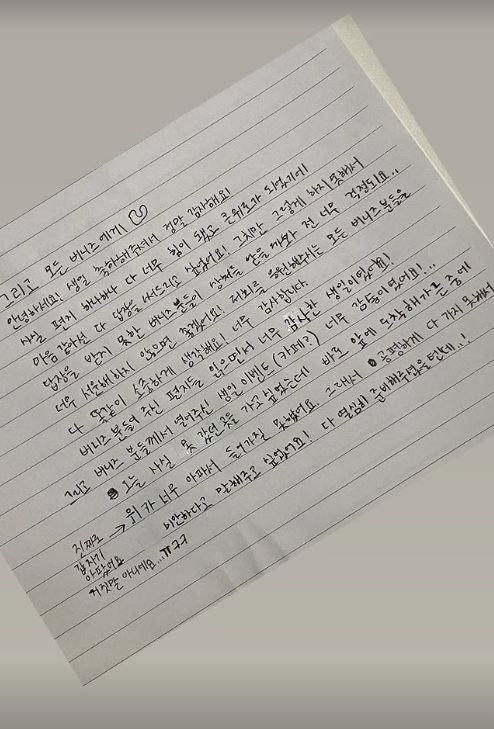 그리고 모든 버니즈에게♡
안녕하세요! 생일 축하해주셔서 정말 감사해요!
사실 편지 하나하나 다 너무 힘이 됐고 큰위로가 되었기에
마음 같아선 다 답장을 써드리고 싶었어요! 그치만 그렇게 하지 못해서
답장을 받지 못한 버니즈분들이 상처를 받을까봐 전 너무 걱정되요..
너무 서운해하지 않으면 좋겠어요! 저희를 응원해주는 모든 버니즈분들을
다 똑같이 소중하게 생각해요! 너무 감사합니다.
버니즈분들이 주신 편지들 읽으면서 너무 감사한 생일이었어요!
그리고 버니즈 분들께서 열어주신 생일 이벤트(카페?) 너무 감동이었어요!...
오늘 사실 못 갔던 곳을 가고 싶었는데 바로 앞에 도착해가는 중에
→ 위가 너무 아파서 들어가질 못했어요 그래서 공평하게 다 가지 못해서
미안하다고 말해주고 싶었어요! 다 열심히 준비해주셨을텐데..!
진짜로
갑자기
아팠어요
거짓말 아니에요...ㅠㅋㅋ